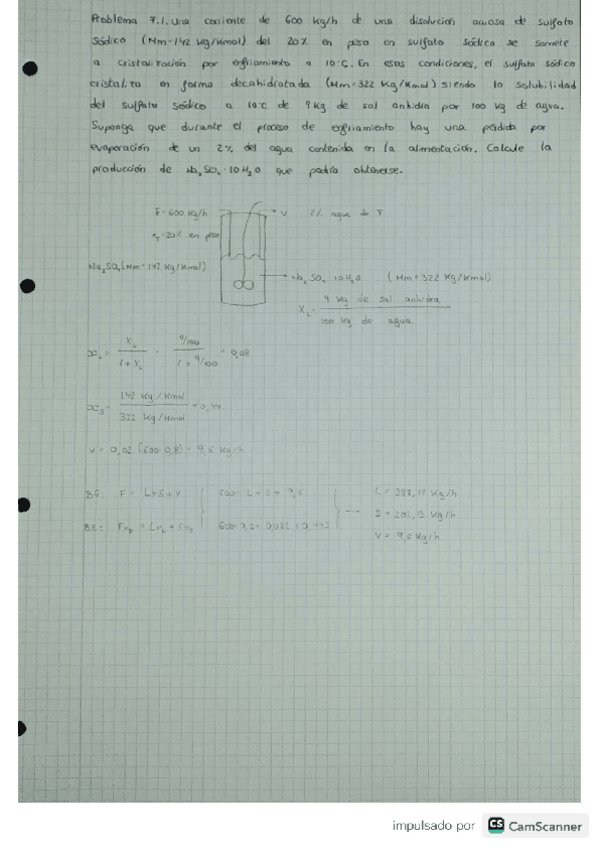 Problema 7.1. Una corriente de 600 kg/h de una disolución acuosa de sulfato
sódico (Mm=142 kg/kmol) del 20% en peso en sulfato sódico se somete
a cristalización por enfriamiento a 10°C. En esas condiciones, el sulfato sódico
cristaliza en forma decahidratada (Mm=322 kg/kmol) siendo la solubilidad
del sulfato sódico a 10°C de 9 kg de sal anhidra por 100 kg de agua.
Suponga que durante el proceso de enfriamiento hay una pérdida por
evaporación de un 2% del agua contenida en la alimentación. Calcule la
producción de Na2SO4·10H2O que podría obtenerse.
F=600 kg/h
V 2% agua de F
20% en peso
Na2SO4 (Mm=142 kg/kmol)
Na2SO4·10H2O (Mm=322 kg/kmol)
XL= 9 kg de sal anhidra / 100 kg de agua
xL= XL / 1+XL = 9/100 / 1+9/100 = 0,08
xS= 142 kg/kmol / 322 kg/kmol = 0,44
V = 0,02 (600·0,8) = 9,6 kg/h
BG: F = L+S+V 600= L+S+9,6 L = 388,17 kg/h
BE: FxF = LxL + SxS S = 202,
V = 9,6 kg/h
impulsado por CS CamScanner